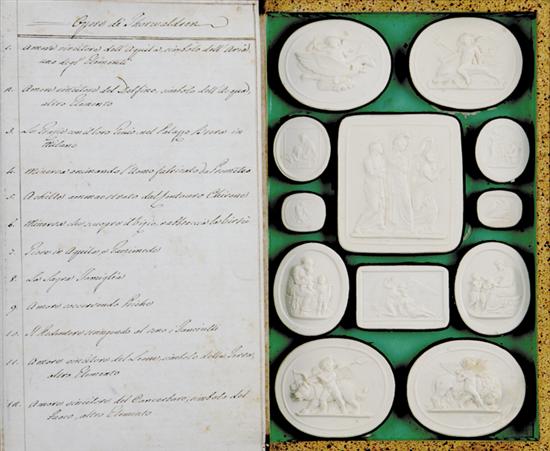 Opere di Thorwaldsen
1. Amore vincitore dell'Aquila, simbolo dell'Aria
uno degl'Elementi
2. Amore vincitore del Delfino, simbolo dell'Acqua,
altro Elemento
3. Le Grazie
Milano
4. Minerva animando l'Uomo fabricato da Prometeo
5. Achille ammaestrato dal Centauro Chirone
6. Minerva che la Virtù
7. Giove in Aquila e Ganimede
8. La Sagra Famiglia
9. Amore Psiche
10. Il Redentore al seno i Fanciulli
11. Amore vincitore del Leone, simbolo della Terra,
altro Elemento
12. Amore vincitore del Cancerbero, simbolo del
Fuoco, altro Elemento